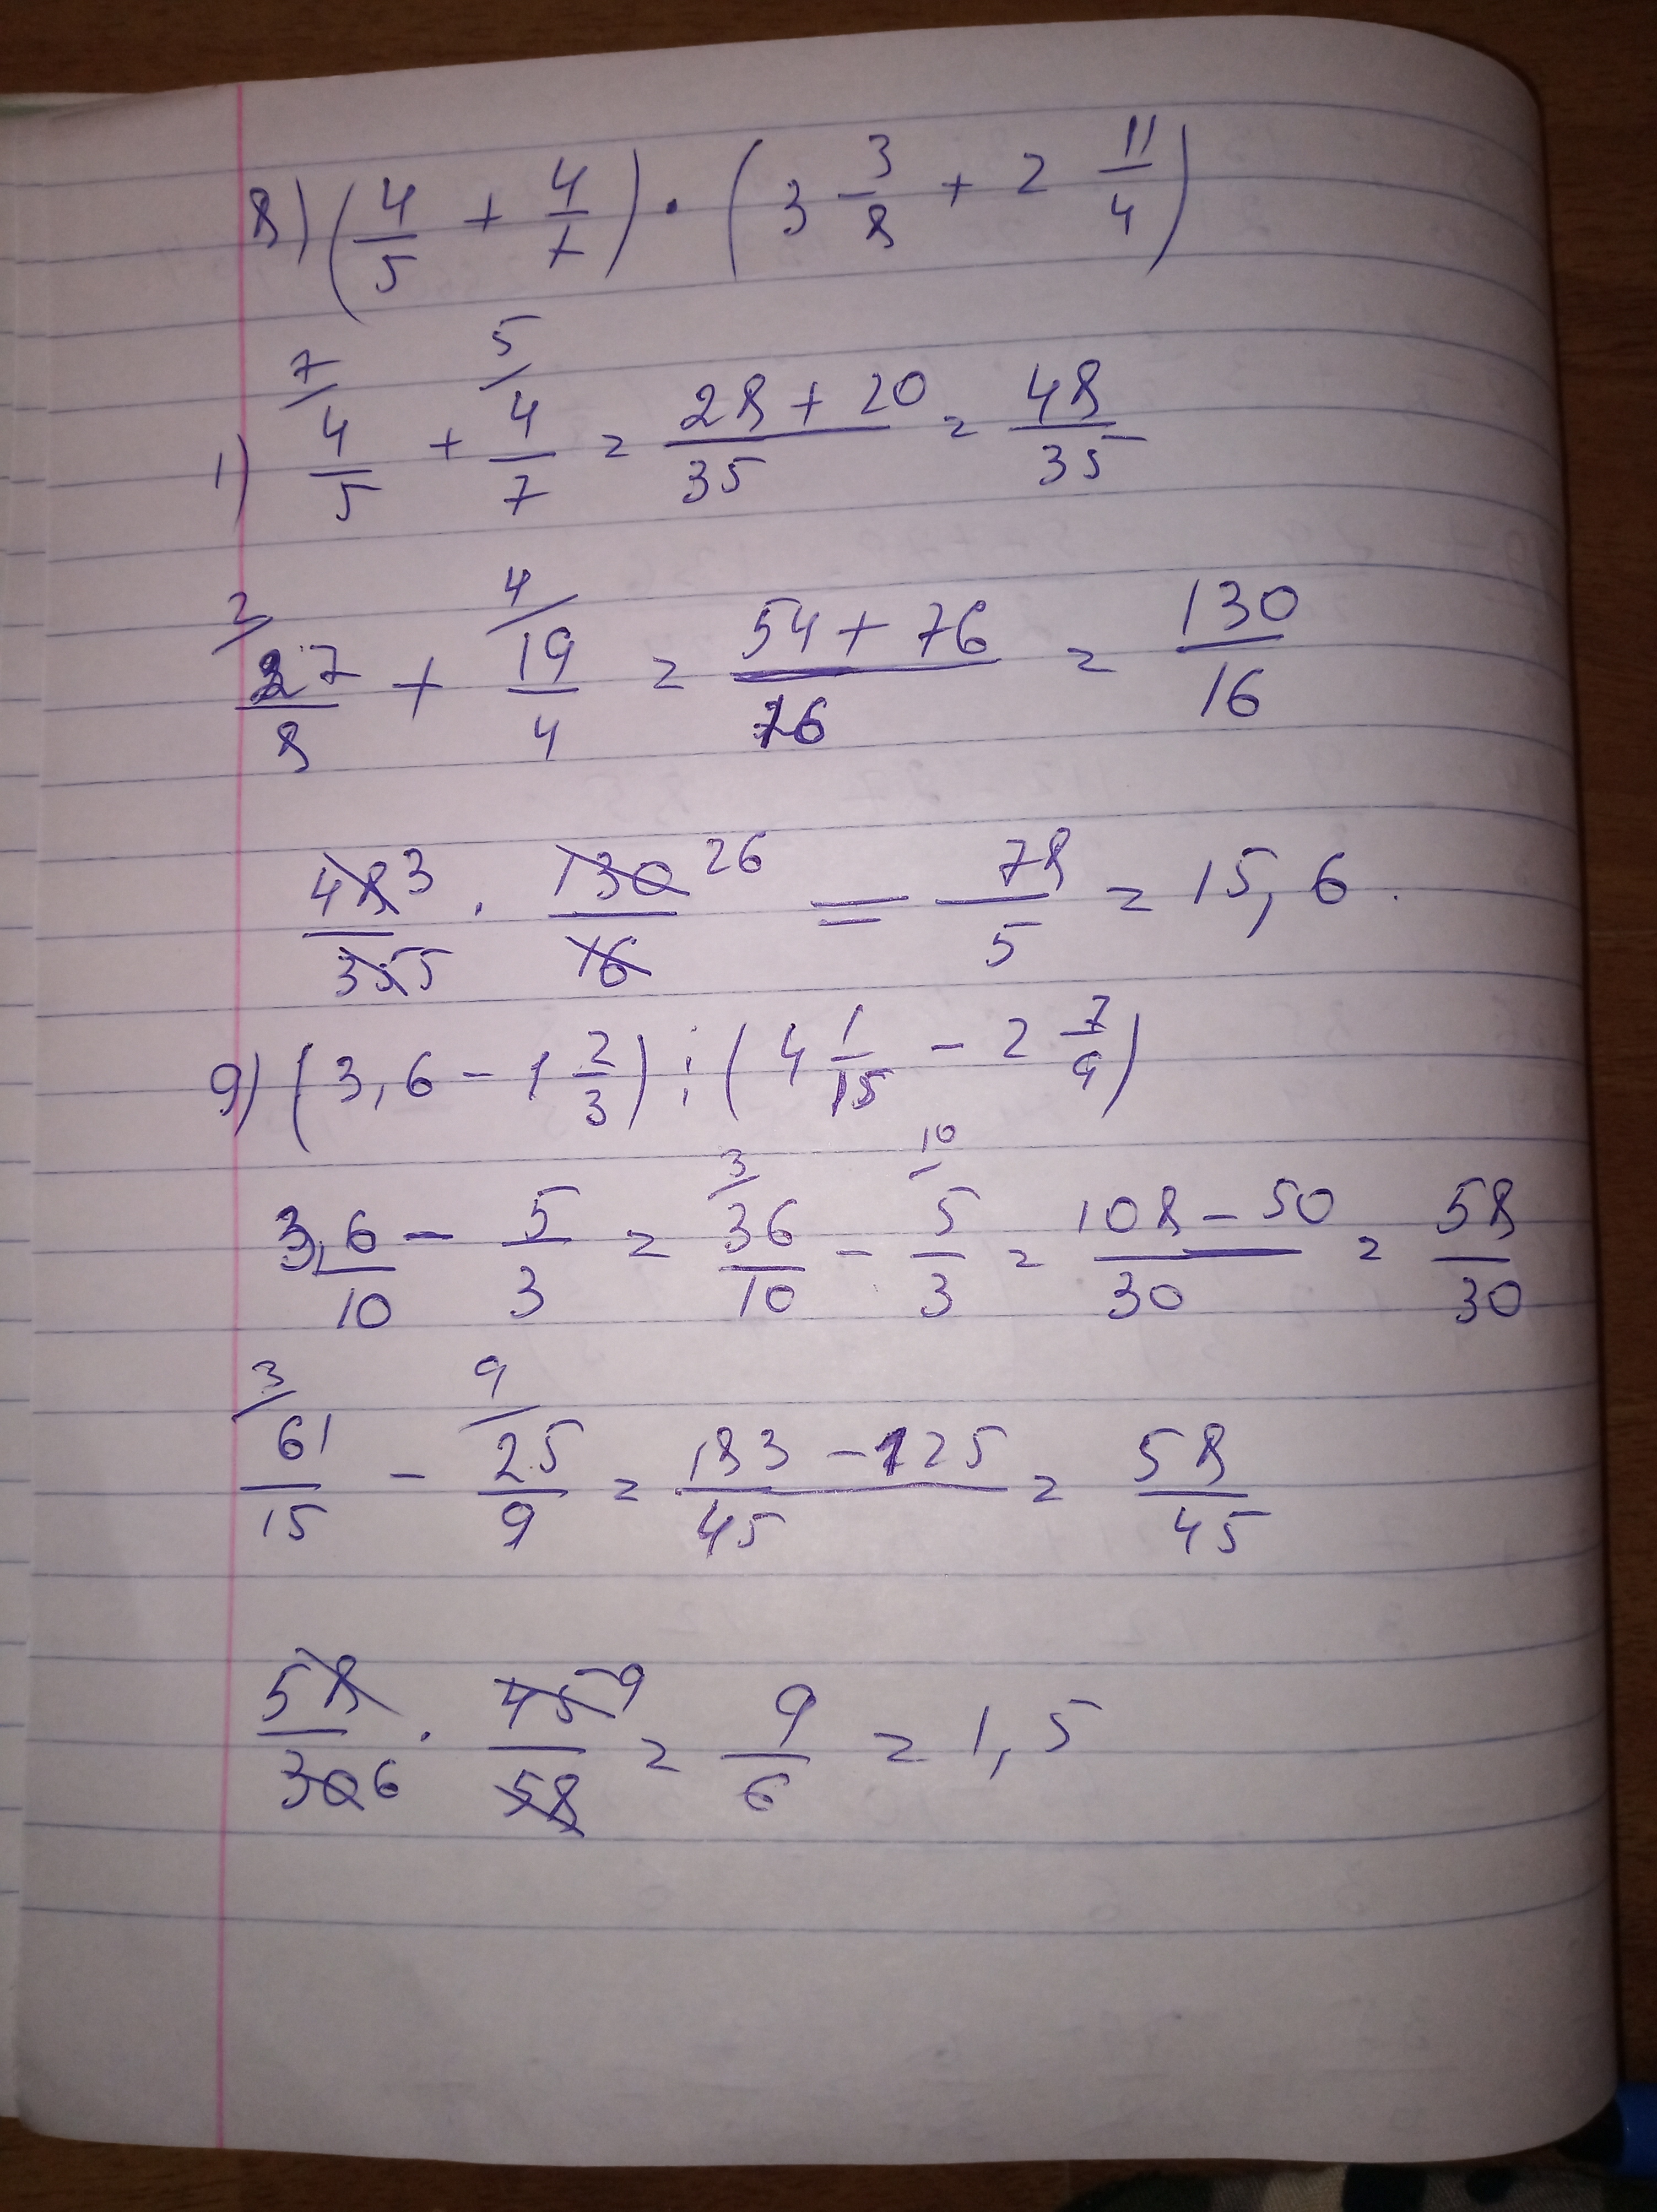 8) (4/5 + 4/7) · (3 3/8 + 2 11/4)
1) 7/ 4/5 + 5/ 4/7 = (28 + 20)/35 = 48/35
2/ 27/8 + 4/ 19/4 = (54 + 76)/16 = 130/16
48 3/35 5 · 130 26/16 = 78/5 = 15,6.
9) (3,6 - 1 2/3) : (4 1/15 - 2 7/9)
3,6/10 - 5/3 = 3/ 36/10 - 10/ 5/3 = (108 - 50)/30 = 58/30
3/ 61/15 - 9/ 25/9 = (183 - 125)/45 = 58/45
58/30 6 · 45 9/58 = 9/6 = 1,5